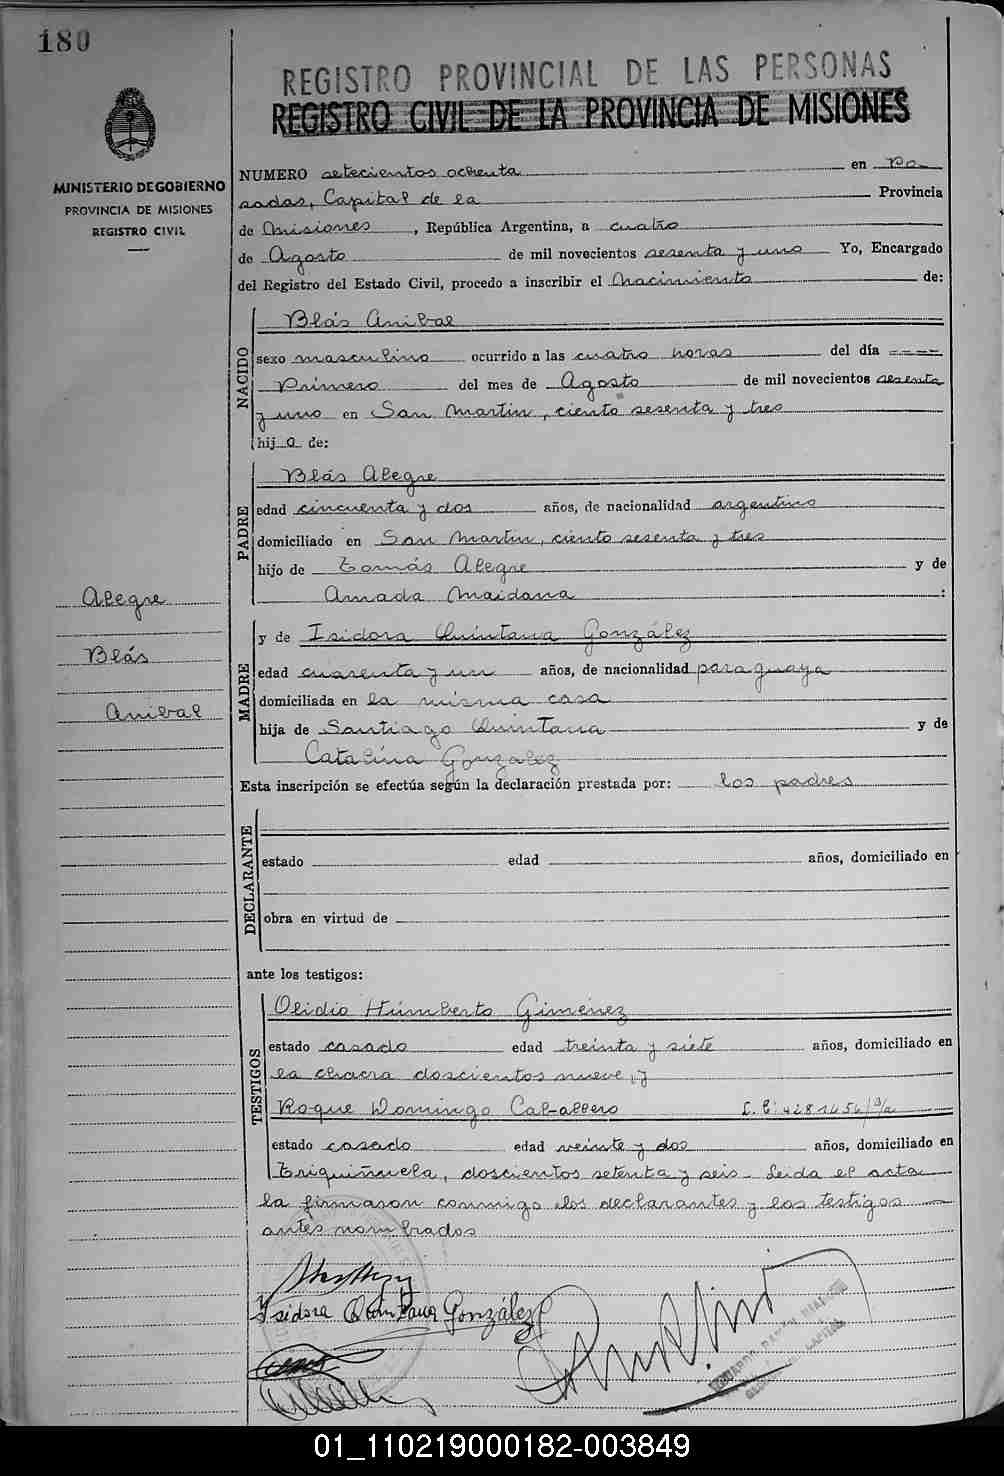 180
REGISTRO PROVINCIAL DE LAS PERSONAS
REGISTRO CIVIL DE LA PROVINCIA DE MISIONES
MINISTERIO DE GOBIERNO
PROVINCIA DE MISIONES
REGISTRO CIVIL
NUMERO setecientos ochenta en Po-
sadas, Capital de la Provincia
de Misiones, República Argentina, a cuatro
de Agosto de mil novecientos sesenta y uno Yo, Encargado
del Registro del Estado Civil, procedo a inscribir el Nacimiento de:
NACIDO
Blás Anibal
sexo masculino ocurrido a las cuatro horas del día ----
Primero del mes de Agosto de mil novecientos sesenta
y uno en San Martin, ciento sesenta y tres
hijo de:
PADRE
Blás Alegre
edad cincuenta y dos años, de nacionalidad argentino
domiciliado en San Martin, ciento sesenta y tres
hijo de Tomás Alegre y de
Amada Maidana :
Alegre
Blás
Anibal
MADRE
y de Isidora Quintana González
edad cuarenta y un años, de nacionalidad paraguaya
domiciliada en la misma casa
hija de Santiago Quintana y de
Catalina Gonzalez
Esta inscripción se efectúa según la declaración prestada por: los padres
DECLARANTE
estado edad años, domiciliado en
obra en virtud de
ante los testigos:
TESTIGOS
Olidio Húmberto Gimenez
estado casado edad treinta y siete años, domiciliado en
la chacra doscientos nueve, y
Roque Domingo Caballero
estado casado edad veinte y dos años, domiciliado en
Triquiñuela, doscientos setenta y seis - Leida el acta
la firmaron conmigo los declarantes y los testigos
antes nombrados
Isidora Quintana González
01_110219000182-003849